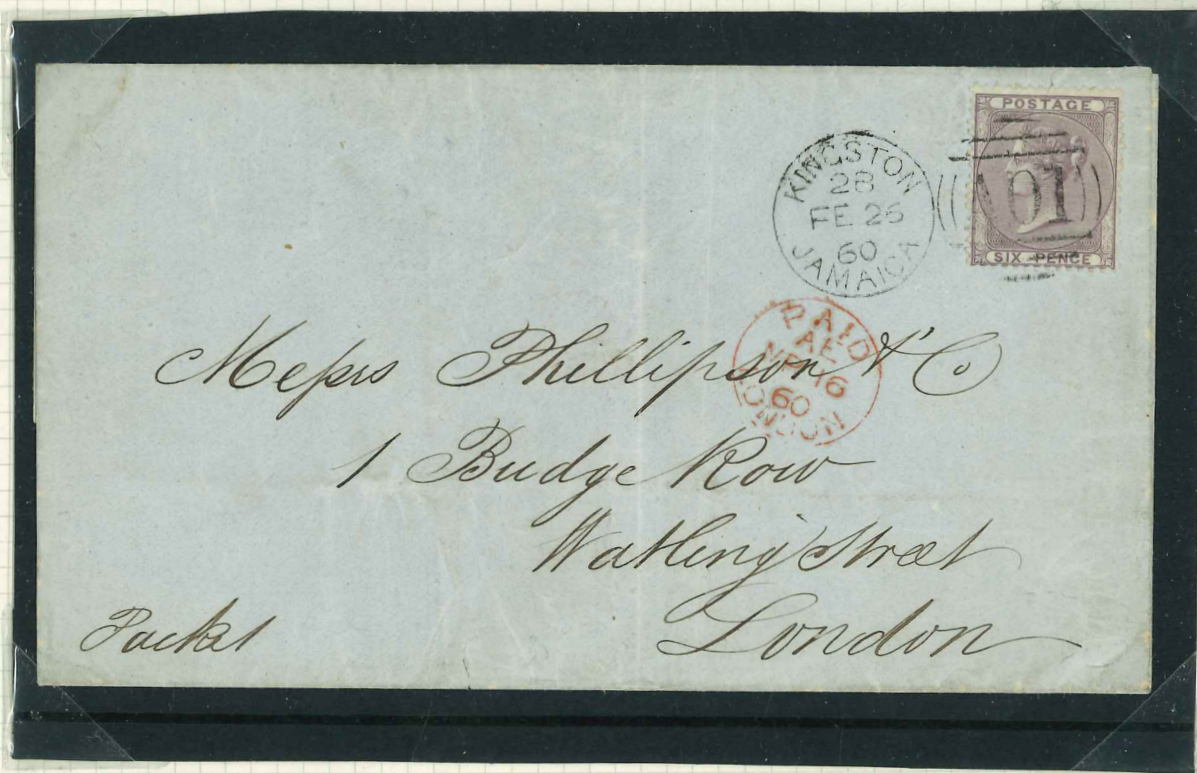 POSTAGE
A01
SIX PENCE
KINGSTON
2B
FE 26
60
JAMAICA
PAID
AE
MR 16
60
LONDON
Mesrs Phillipson & Co
1 Budge Row
Watling Street
London
Packet